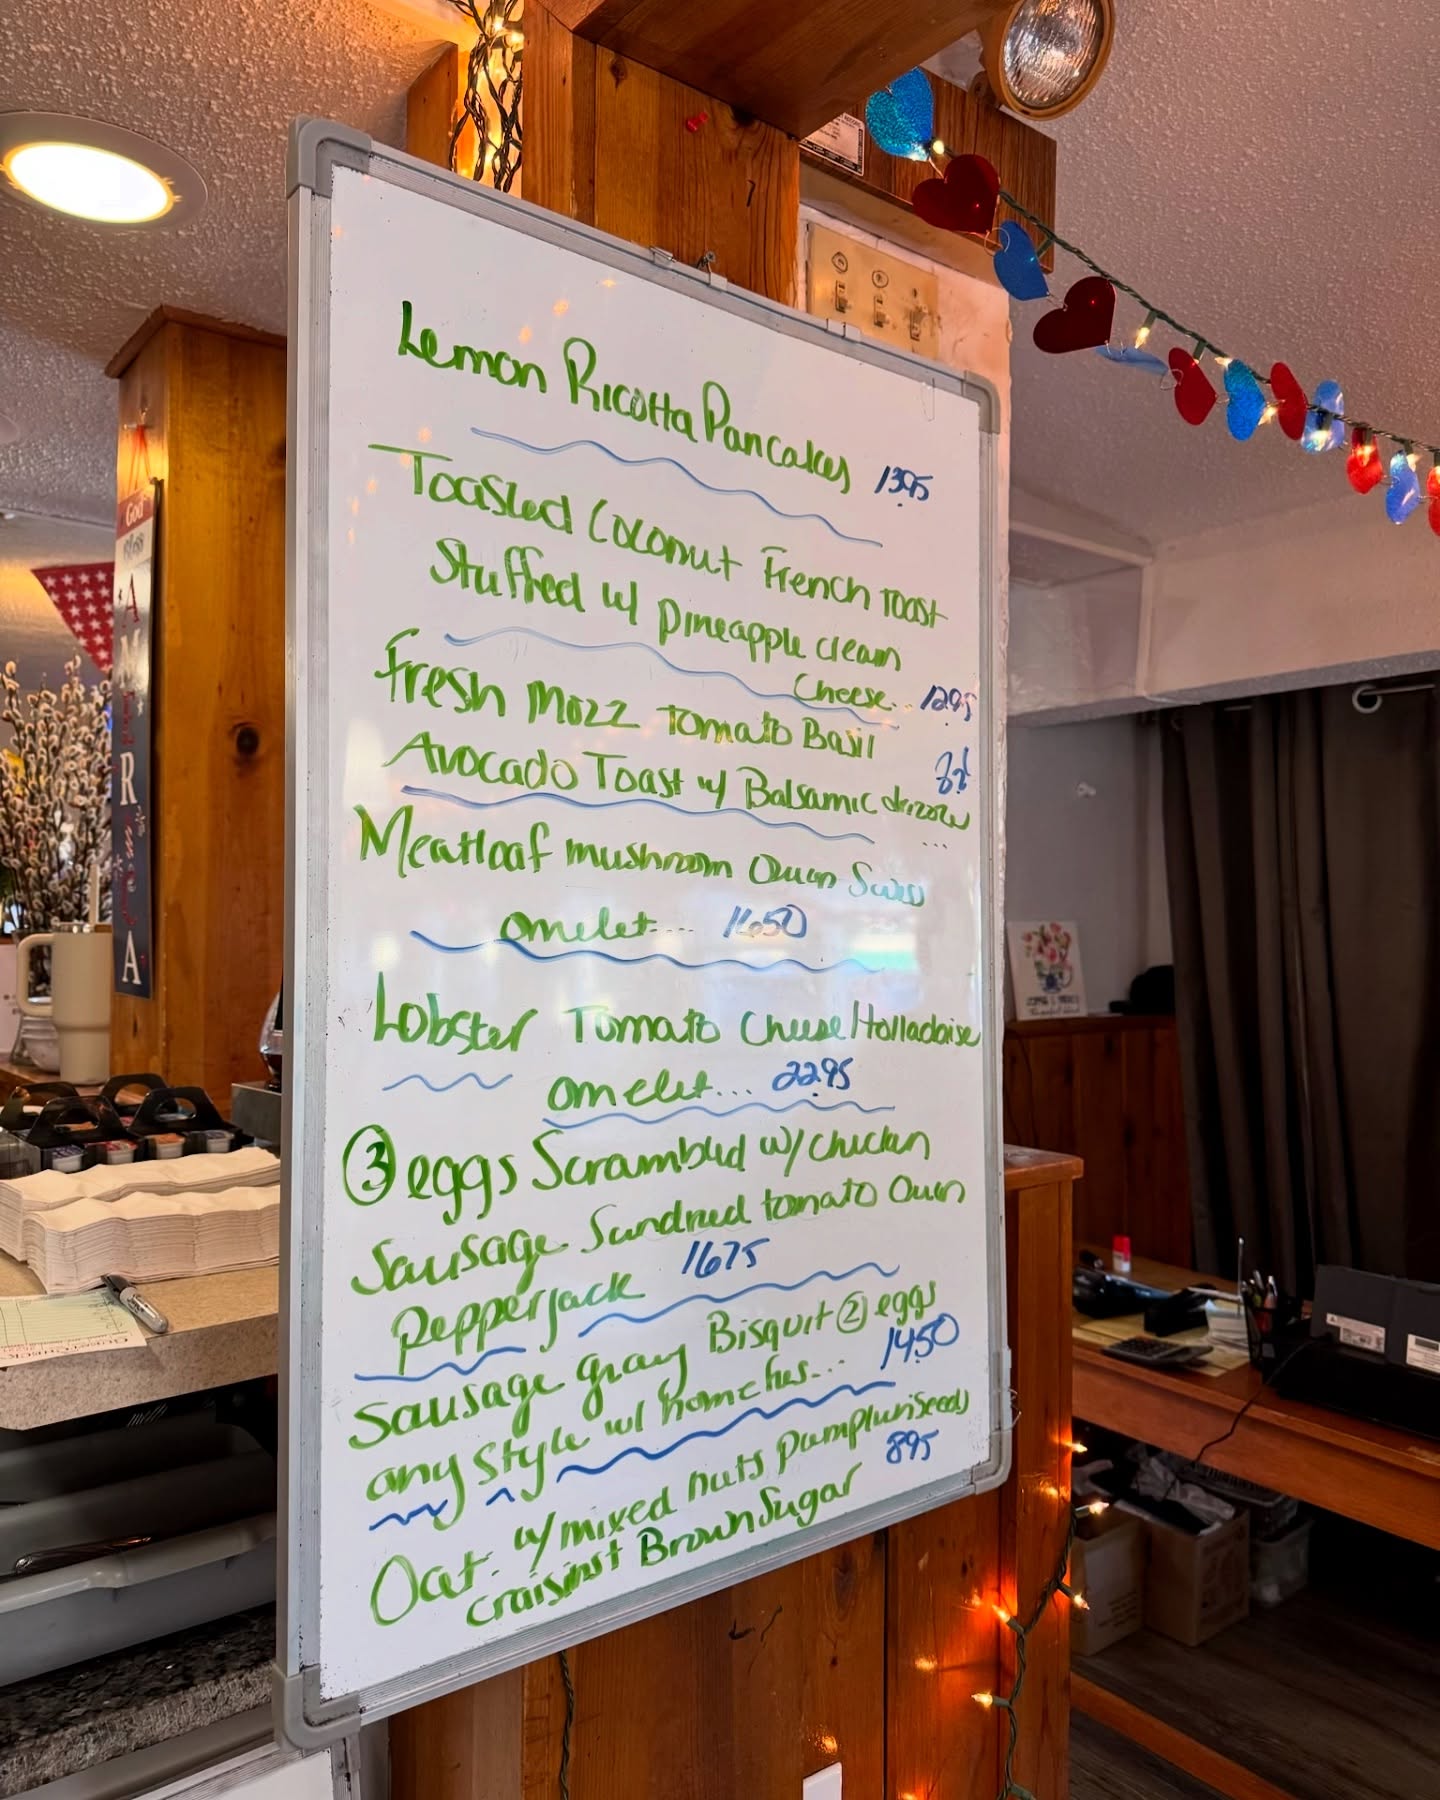 Lemon Ricotta Pancakes 1395
Toasted Coconut French Toast
Stuffed w/ pineapple cream
Cheese.. 1295
Fresh Mozz Tomato Basil
Avocado Toast w/ Balsamic
Meatloaf mushroom Onion Swiss
omelet.... 1650
Lobster Tomato Cheese/Holladaise
omelet... 2295
③ eggs Scrambled w/ chicken
Sausage Sundried tomato Onion
Pepperjack 1675
Sausage gravy Bisquit ② eggs
any style w/ homefries... 1450
Oat. w/ mixed nuts pumpkin seeds 895
craisins+ Brown Sugar
God
Bless
AMERICA